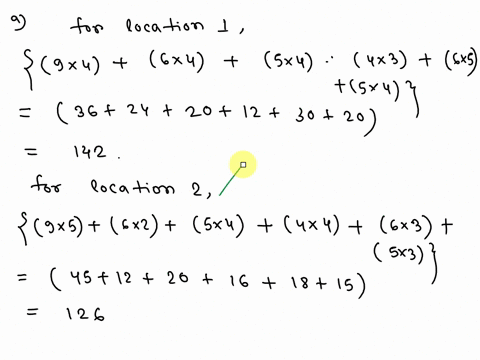 a) for location 1,
{(9x4) + (6x4) + (5x4) + (4x3) + (6x5)
+ (5x4)}
= (36 + 24 + 20 + 12 + 30 + 20)
= 142.
for location 2,
{(9x5) + (6x2) + (5x4) + (4x4) + (6x3) +
(5x3)}
= (45 + 12 + 20 + 16 + 18 + 15)
= 126